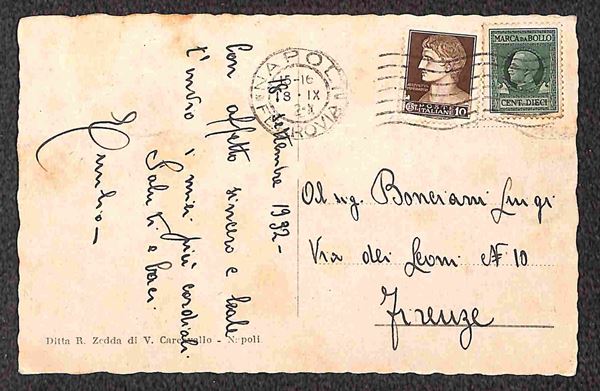 NAPOLI
15-16
18 · IX
FERROVIA
POSTE
ITALIANE 10
MARCA DA BOLLO
CENT. DIECI
18 Settembre 1932 -
Con affetto sincero e leale
t'invio i miei più cordiali
Saluti e baci
Al sig. Bonciani Luigi
Via dei Leoni N 10
Firenze
Ditta R. Zedda di V. Carcavallo - Napoli